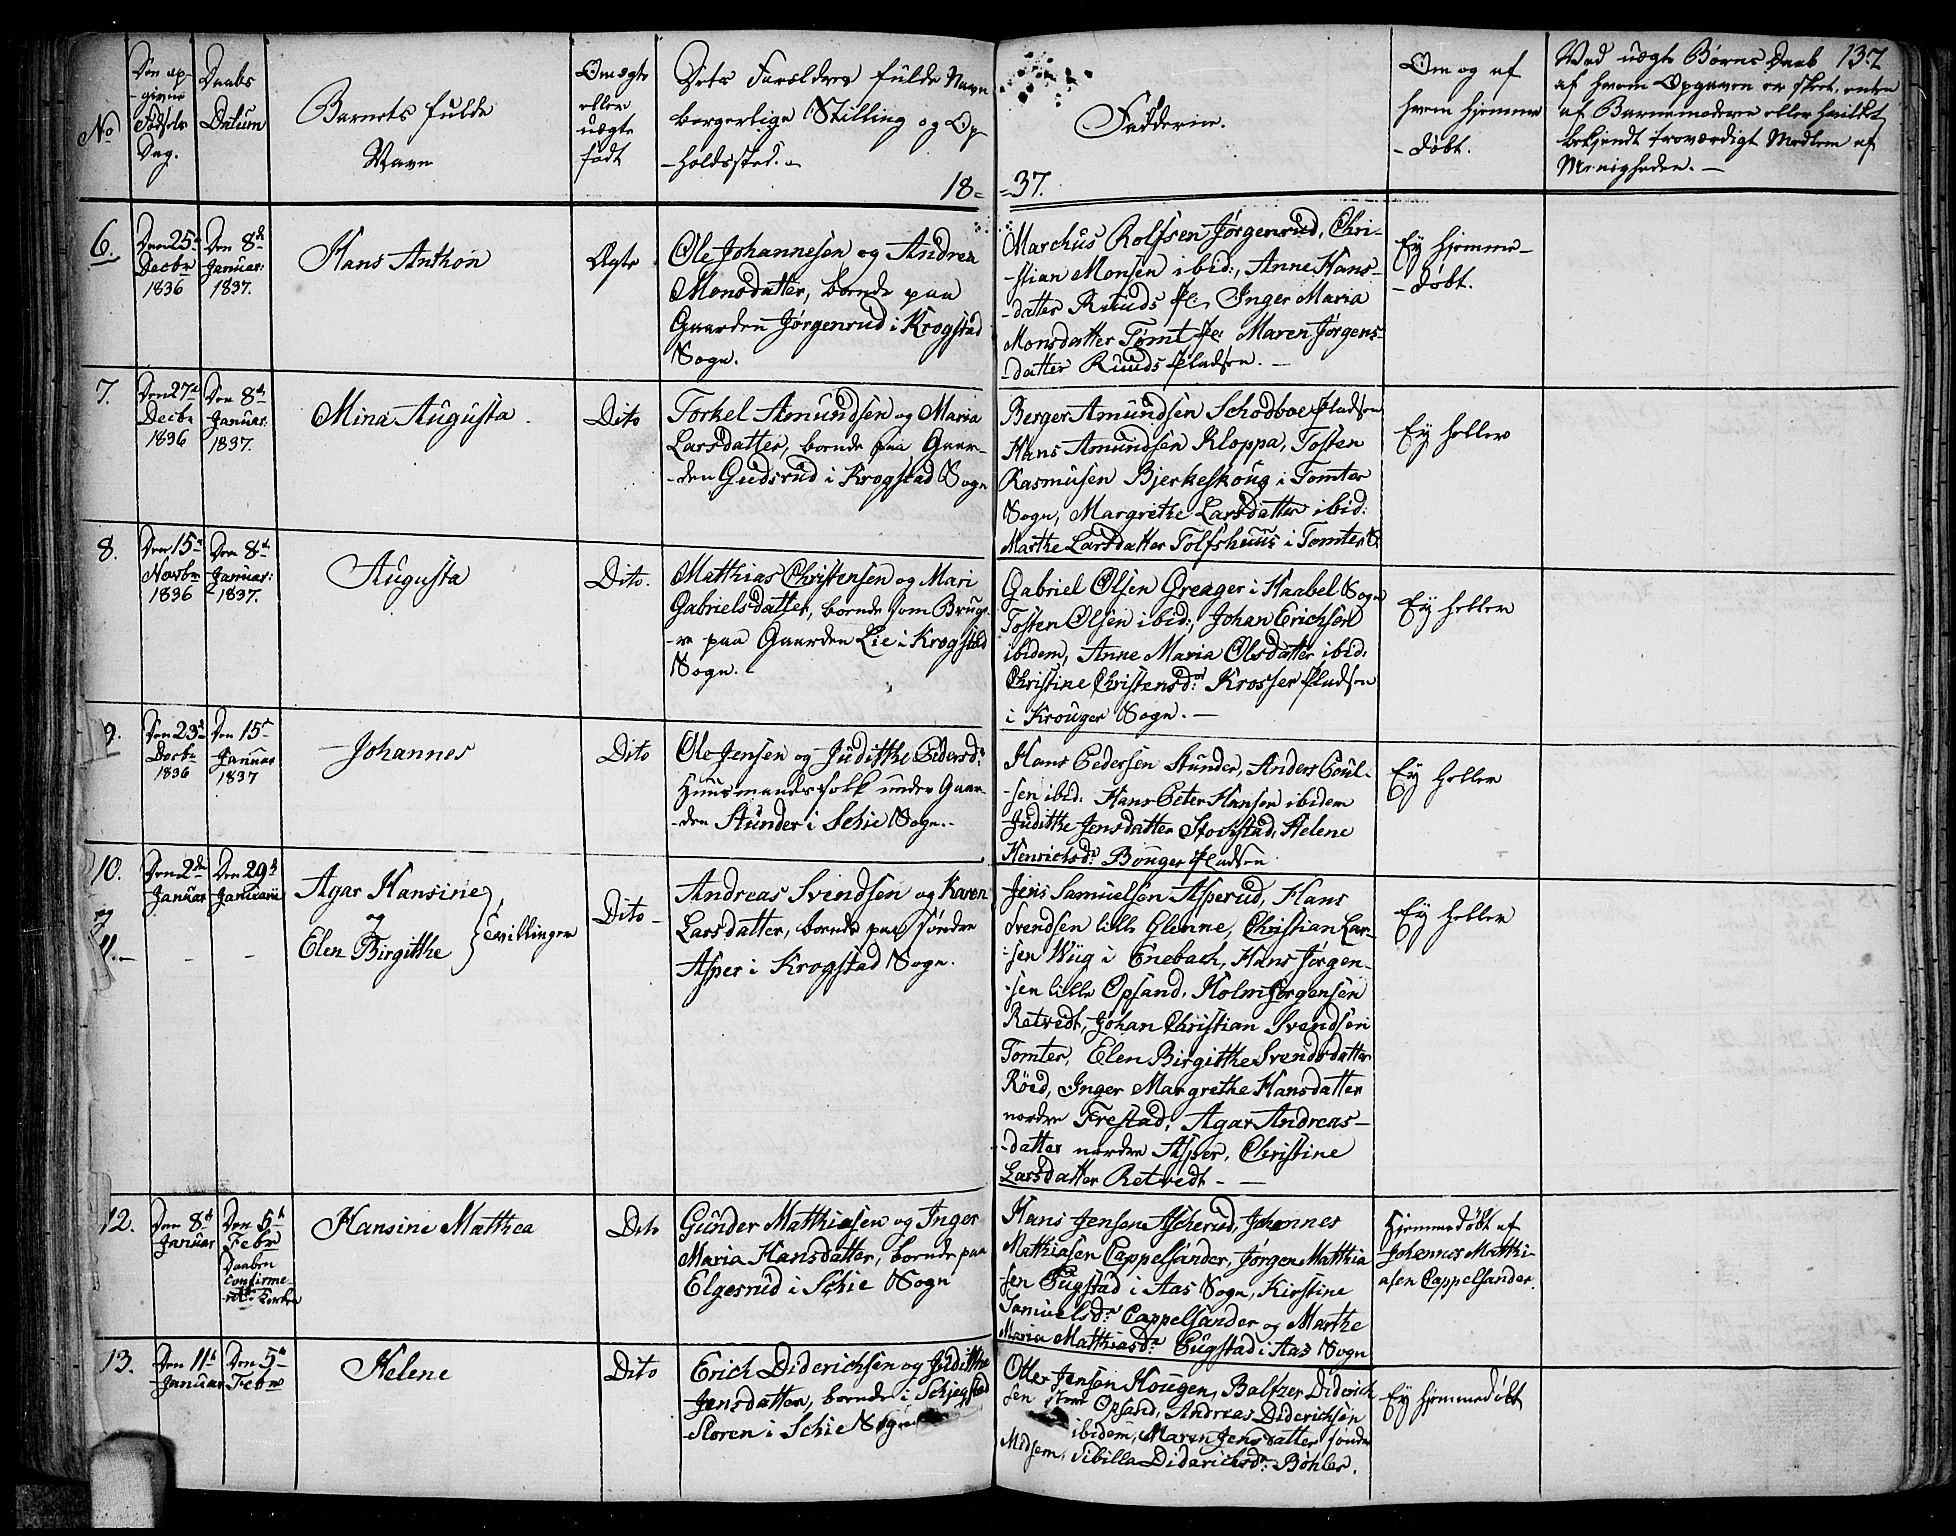 137
No
Den op-
-givne
Fødsels
Dag.
Daabs
Datum
Barnets fulde
Navn
Om ægte
eller
uægte
født
Dets Forældres fulde Navn
borgerlige Stilling og Op
-holdssted.
18=
=37.
Fadderne.
Om og af
hvem hjemme
-døbt.
Ved uægte Børns Daab
af hvem Opgaven er skeet, enten
af Barnemoderen eller hvilket
bekjendt troværdigt Medlem af
Menigheden. -
6.
Den 25de
Decbr
1836
Den 8de
Januar:
1837.
Hans Anthon
Ægte
Ole Johannesen og Andrea
Monsdatter, boende paa
Gaarden Jørgenrud i Krogstad
Sogn.
Marchus Rolfsen Jørgenrud, Chri-
-stian Monsen ibid:, Anne Hans-
-datter Ruuds Pl: Inger Maria
Monsdatter Tømt Pl: Maren Jørgens-
-datter Ruuds Pladsen. -
Ey hjemme-
-døbt.
7.
Den 27de
Decbr
1836
Den 8de
Januar:
1837.
Mina Augusta.
Dito
Torkel Amundsen og Maria
Larsdatter, boende paa Gaar-
-den Gudsrud i Krogstad Sogn
Berger Amundsen Schodboe Pladsen
Hans Amundsen Kloppa, Tosten
Rasmusen Bjerkeskoug i Tomter
Sogn, Margrethe Larsdatter ibid:
Marthe Larsdatter Tolfshuus i Tomter S.
Ey heller
8.
Den 15de
Novbr
1836
Den 8de
Januar:
1837.
Augusta
Dito.
Matthias Christensen og Mari
Gabrielsdatter, boende som Bruge-
-re paa Gaarden Lie i Krogstad
Sogn.
Gabriel Olsen Greager i Haabel Sogn
Tosten Olsen ibid:, Johan Erichsen
ibidem, Anne Maria Olsdatter ibid:
Christine Christensdr Krosser Pladsen
i Krouger Sogn. -
Ey heller
9.
Den 23de
Decbr
1836
Den 15de
Januar
1837
Johannes
Dito
Ole Jensen og Judithe Pedersdr:
Huusmandsfolk under Gaar-
-den Stunder i Schie Sogn.-
Hans Pedersen Stunder, Anders Poul-
-sen ibid: Hans Peter Hansen ibidem
Judithe Jensdatter Stochstad, Helene
Henrichsdr Bouger Pladsen
Ey heller
10.
og
11.-
Den 2de
Januar
-
Den 29de
Januarii
-
Agar Hansine
og
Elen Birgitthe
Tvillinger
Dito -
Andreas Svendsen og Karen
Larsdatter, boende paa søndre
Asper i Krogstad Sogn.
Jens Samuelsen Asperud, Hans
Svendsen lille Glenne, Christian Lar-
-sen Wiig i Enebach, Hans Jørgen-
-sen lille Opsand, Holm Jørgensen
Retvedt, Johan Christian Svendsen
Tomter, Elen Birgitthe Svendsdatter
Röed, Inger Margrethe Hansdatter
nordre Frestad, Agar Andreas-
-datter nordre Asper, Christine
Larsdatter Retvedt - -
Ey heller
12.
Den 8de
Januar
Den 5te
Febr
Daaben
confirme-
ret i Kirken
Hansine Matthea
Dito
Gunder Matthiasen og Inger
Maria Hansdatter, boende paa
Elgesrud i Schie Sogn
Hans Jensen Ascherud, Johannes
Mathiasen Cappelsander, Jørgen Matthia
sen Pugstad i Aas Sogn, Kirstine
Samuelsdr Cappelsander og Marthe
Maria Matthiasdr Pugstad i Aas Sogn
Hjemmedøbt af
Johannes Matthi-
asen Cappelsander.
13.
Den 11te
Januar
Den 5te
Febr
Helene
Dito
Erich Diderichsen og Judithe
Jensdatter, boende i Schjegstad
Sloren i Schie Sogn
Otter Jensen Hougen, Baltzer Diderich
sen store Opsand, Andreas Diderichsen
ibidem, Maren Jensdatter søndre
Midsem, Sibilla Diderichsdr: Bøhler.
Ey hjemmedøbt